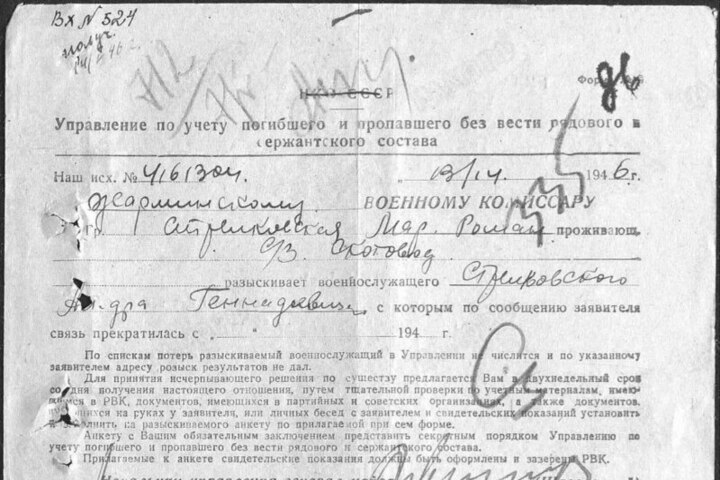 Вх № 524
получ.
НКО СССР
Управление по учету погибшего и пропавшего без вести рядового и
сержантского состава
Наш исх. № 1946 г.
Жарминскому ВОЕННОМУ КОМИССАРУ
Стрелковская Мар. Роман проживающ.
с/з Скотовод
разыскивает военнослужащего Стрелковского
Геннадиевича с которым по сообщению заявителя
связь прекратилась с „ " 194 г.
По спискам потерь разыскиваемый военнослужащий в Управлении не числится и по указанному
заявителем адресу розыск результатов не дал.
Для принятия исчерпывающего решения по существу предлагается Вам в двухнедельный срок
со дня получения настоящего отношения, путем тщательной проверки по учетным материалам, имею-
щимся в РВК, документов, имеющихся в партийных и советских организациях, а также документов,
имеющихся на руках у заявителя, или личных бесед с заявителем и свидетельских показаний установить
и заполнить на разыскиваемого анкету по прилагаемой при сем форме.
Анкету с Вашим обязательным заключением представить секретным порядком Управлению по
учету погибшего и пропавшего без вести рядового и сержантского состава.
Прилагаемые к анкете свидетельские показания должны быть оформлены и заверены РВК.